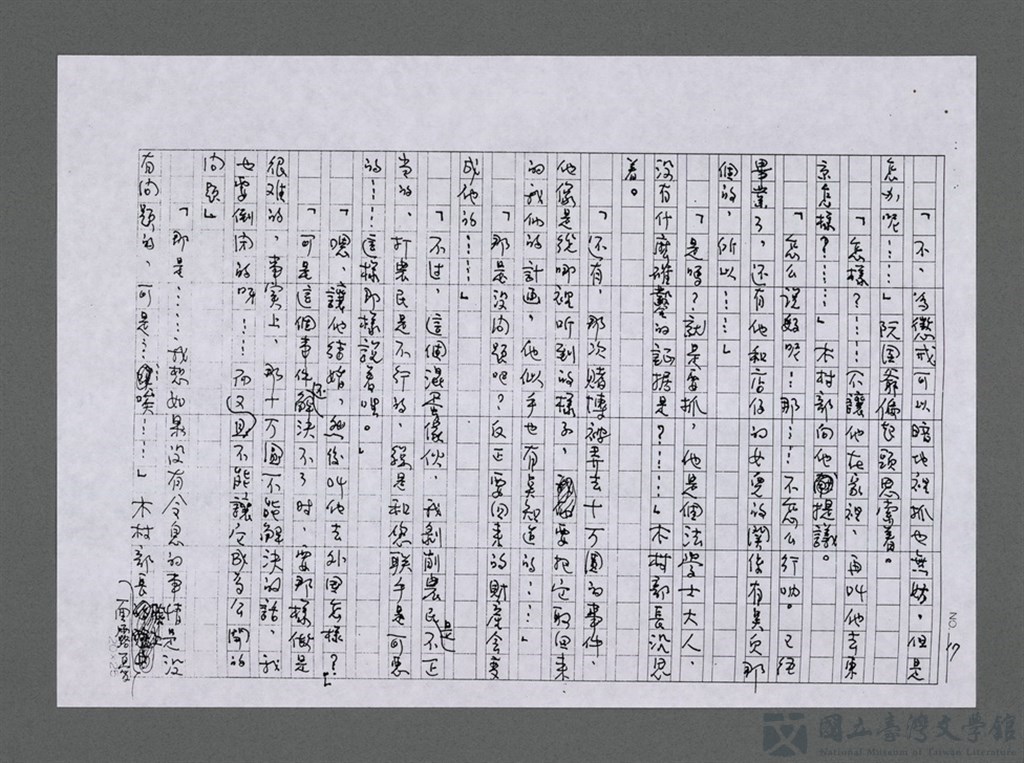 「不、為懲戒可以暗地裡抓也無妨。但是
怎办呢……」阮国爺傾起頭思索着。
「怎樣？……不讓他在家裡、再叫他去東
京怎樣？……」木村部向他提議。
「怎么说好呢……那……不怎么行呐。已經
畢業了、还有他和店仔的女兒的関係有負欠那
個的、所以……」
「是嗎？就是要抓、他是個法学士大人、
没有什麼確鑿的証据是？……」木村部長沉思
着。
「还有、那次賭博被弄去十万圓的事件、
他像是從哪裡听到的樣子、要把它取回來
的我们的計画、他似乎也有点知道的……」
「那是没问題吧？反正要回來的財產会變
成他的……」
「不过、這個混蛋傢伙、说剝削農民是不正
當的、打農民是不行的、經是和您联手是可惡
的……這樣那樣說着哩。」
「嗯、讓他結婚、然後叫他去外国怎樣？」
「可是這個事件还解決不了時、要那樣做是
很难的、事实上、那十万圓不能解決的話、我
也要倒闭的呀……而又且不能讓它成為公開的
问題」
「那是……我想如果没有令息的事情是没
有问題的、可是……唉……」木村部長
面露
20
17
國立臺灣文學館
National Museum of Taiwan Literature